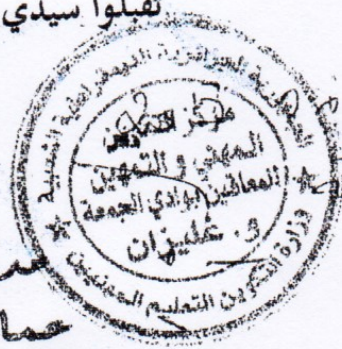 تقبلوا سيدي
الجمهورية الجزائرية الديمقراطية الشعبية
مركز التكوين
المهني و التمهين
المعاقين بوادي الجمعة
و. غليزان
وزارة التكوين التعليم المهنيين